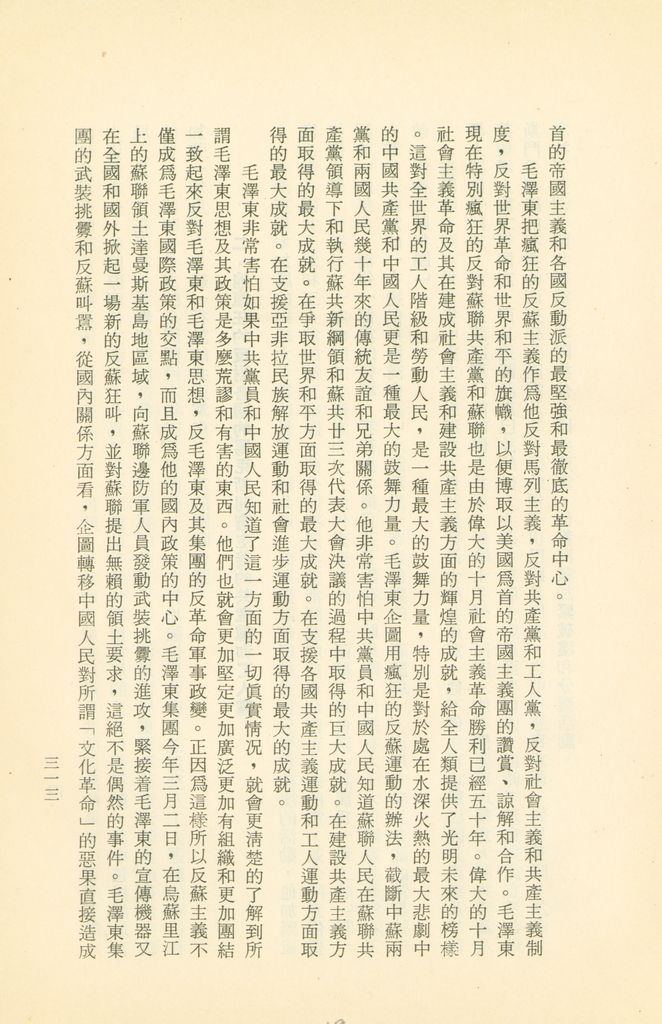 首的帝國主義和各國反動派的最堅強和最徹底的革命中心。
毛澤東把瘋狂的反蘇主義作爲他反對馬列主義，反對共產黨和工人黨，反對社會主義和共產主義制
度，反對世界革命和世界和平的旗幟，以便博取以美國爲首的帝國主義團的讚賞、諒解和合作。毛澤東
現在特別瘋狂的反對蘇聯共產黨和蘇聯也是由於偉大的十月社會主義革命勝利已經五十年。偉大的十月
社會主義革命及其在建成社會主義和建設共產主義方面的輝煌的成就，給全人類提供了光明未來的榜樣
。這對全世界的工人階級和勞動人民，是一種最大的鼓舞力量，特別是對於處在水深火熱的最大悲劇中
的中國共產黨和中國人民更是一種最大的鼓舞力量。毛澤東企圖用瘋狂的反蘇運動的辦法，截斷中蘇兩
黨和兩國人民幾十年來的傳統友誼和兄弟關係。他非常害怕中共黨員和中國人民知道蘇聯人民在蘇聯共
產黨領導下和執行蘇共新綱領和蘇共廿三次代表大會決議的過程中取得的巨大成就。在建設共產主義方
面取得的最大成就。在爭取世界和平方面取得的最大成就。在支援各國共產主義運動和工人運動方面取
得的最大成就。在支援亞非拉民族解放運動和社會進步運動方面取得的最大的成就。
毛澤東非常害怕如果中共黨員和中國人民知道了這一方面的一切眞實情況，就會更清楚的了解到所
謂毛澤東思想及其政策是多麽荒謬和有害的東西。他們也就會更加堅定更加廣泛更加有組織和更加團結
一致起來反對毛澤東和毛澤東思想，反毛澤東及其集團的反革命軍事政變。正因爲這樣所以反蘇主義不
僅成爲毛澤東國際政策的交點，而且成爲他的國內政策的中心。毛澤東集團今年三月二日，在烏蘇里江
上的蘇聯領土達曼斯基島地區域，向蘇聯邊防軍人員發動武裝挑釁的進攻，緊接着毛澤東的宣傳機器又
在全國和國外掀起一場新的反蘇狂叫，並對蘇聯提出無賴的領土要求，這絕不是偶然的事件。毛澤東集
團的武裝挑釁和反蘇叫囂，從國內關係方面看，企圖轉移中國人民對所謂「文化革命」的惡果直接造成
三一三